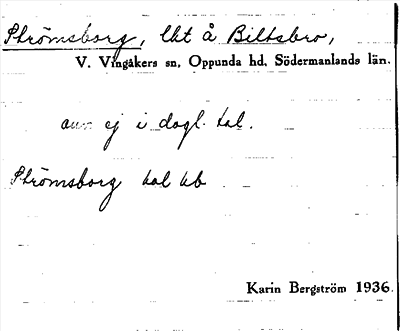 Strömsborg, lht å Biltsbro,
V. Vingåkers sn, Oppunda hd, Södermanlands län.
anv ej i dagl. tal.
Strömsborg hal hb
Karin Bergström 1936.